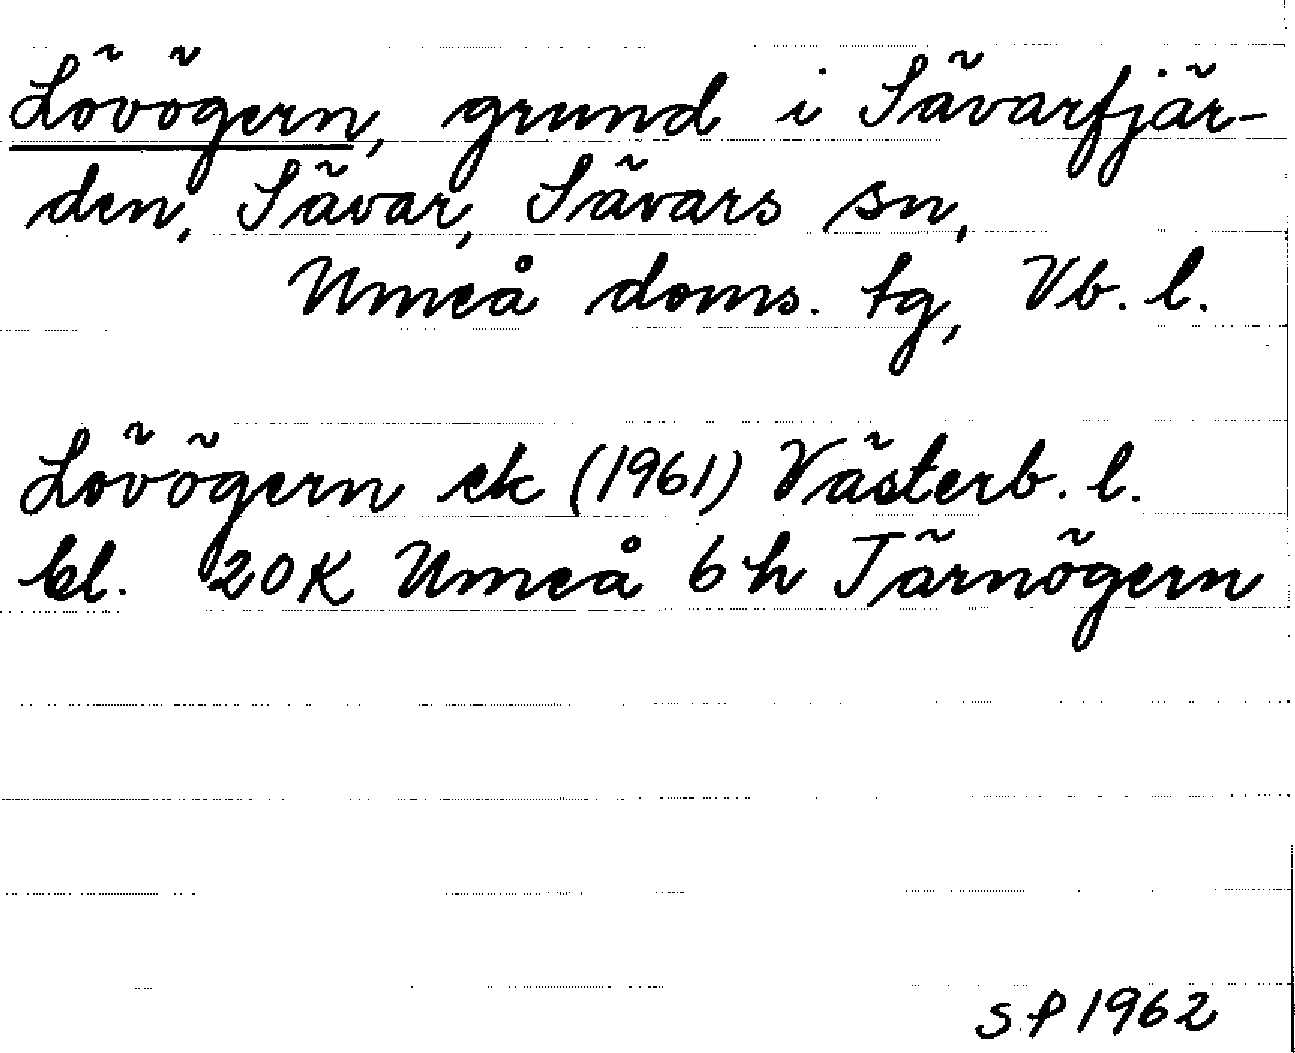 Lövögern, grund i Sävarfjär-
den, Sävar, Sävars sn,
Umeå doms. tg, Vb. l.
Lövögern ek (1961) Västerb. l.
bl. 20K Umeå 6h Tärnögern
SP 1962